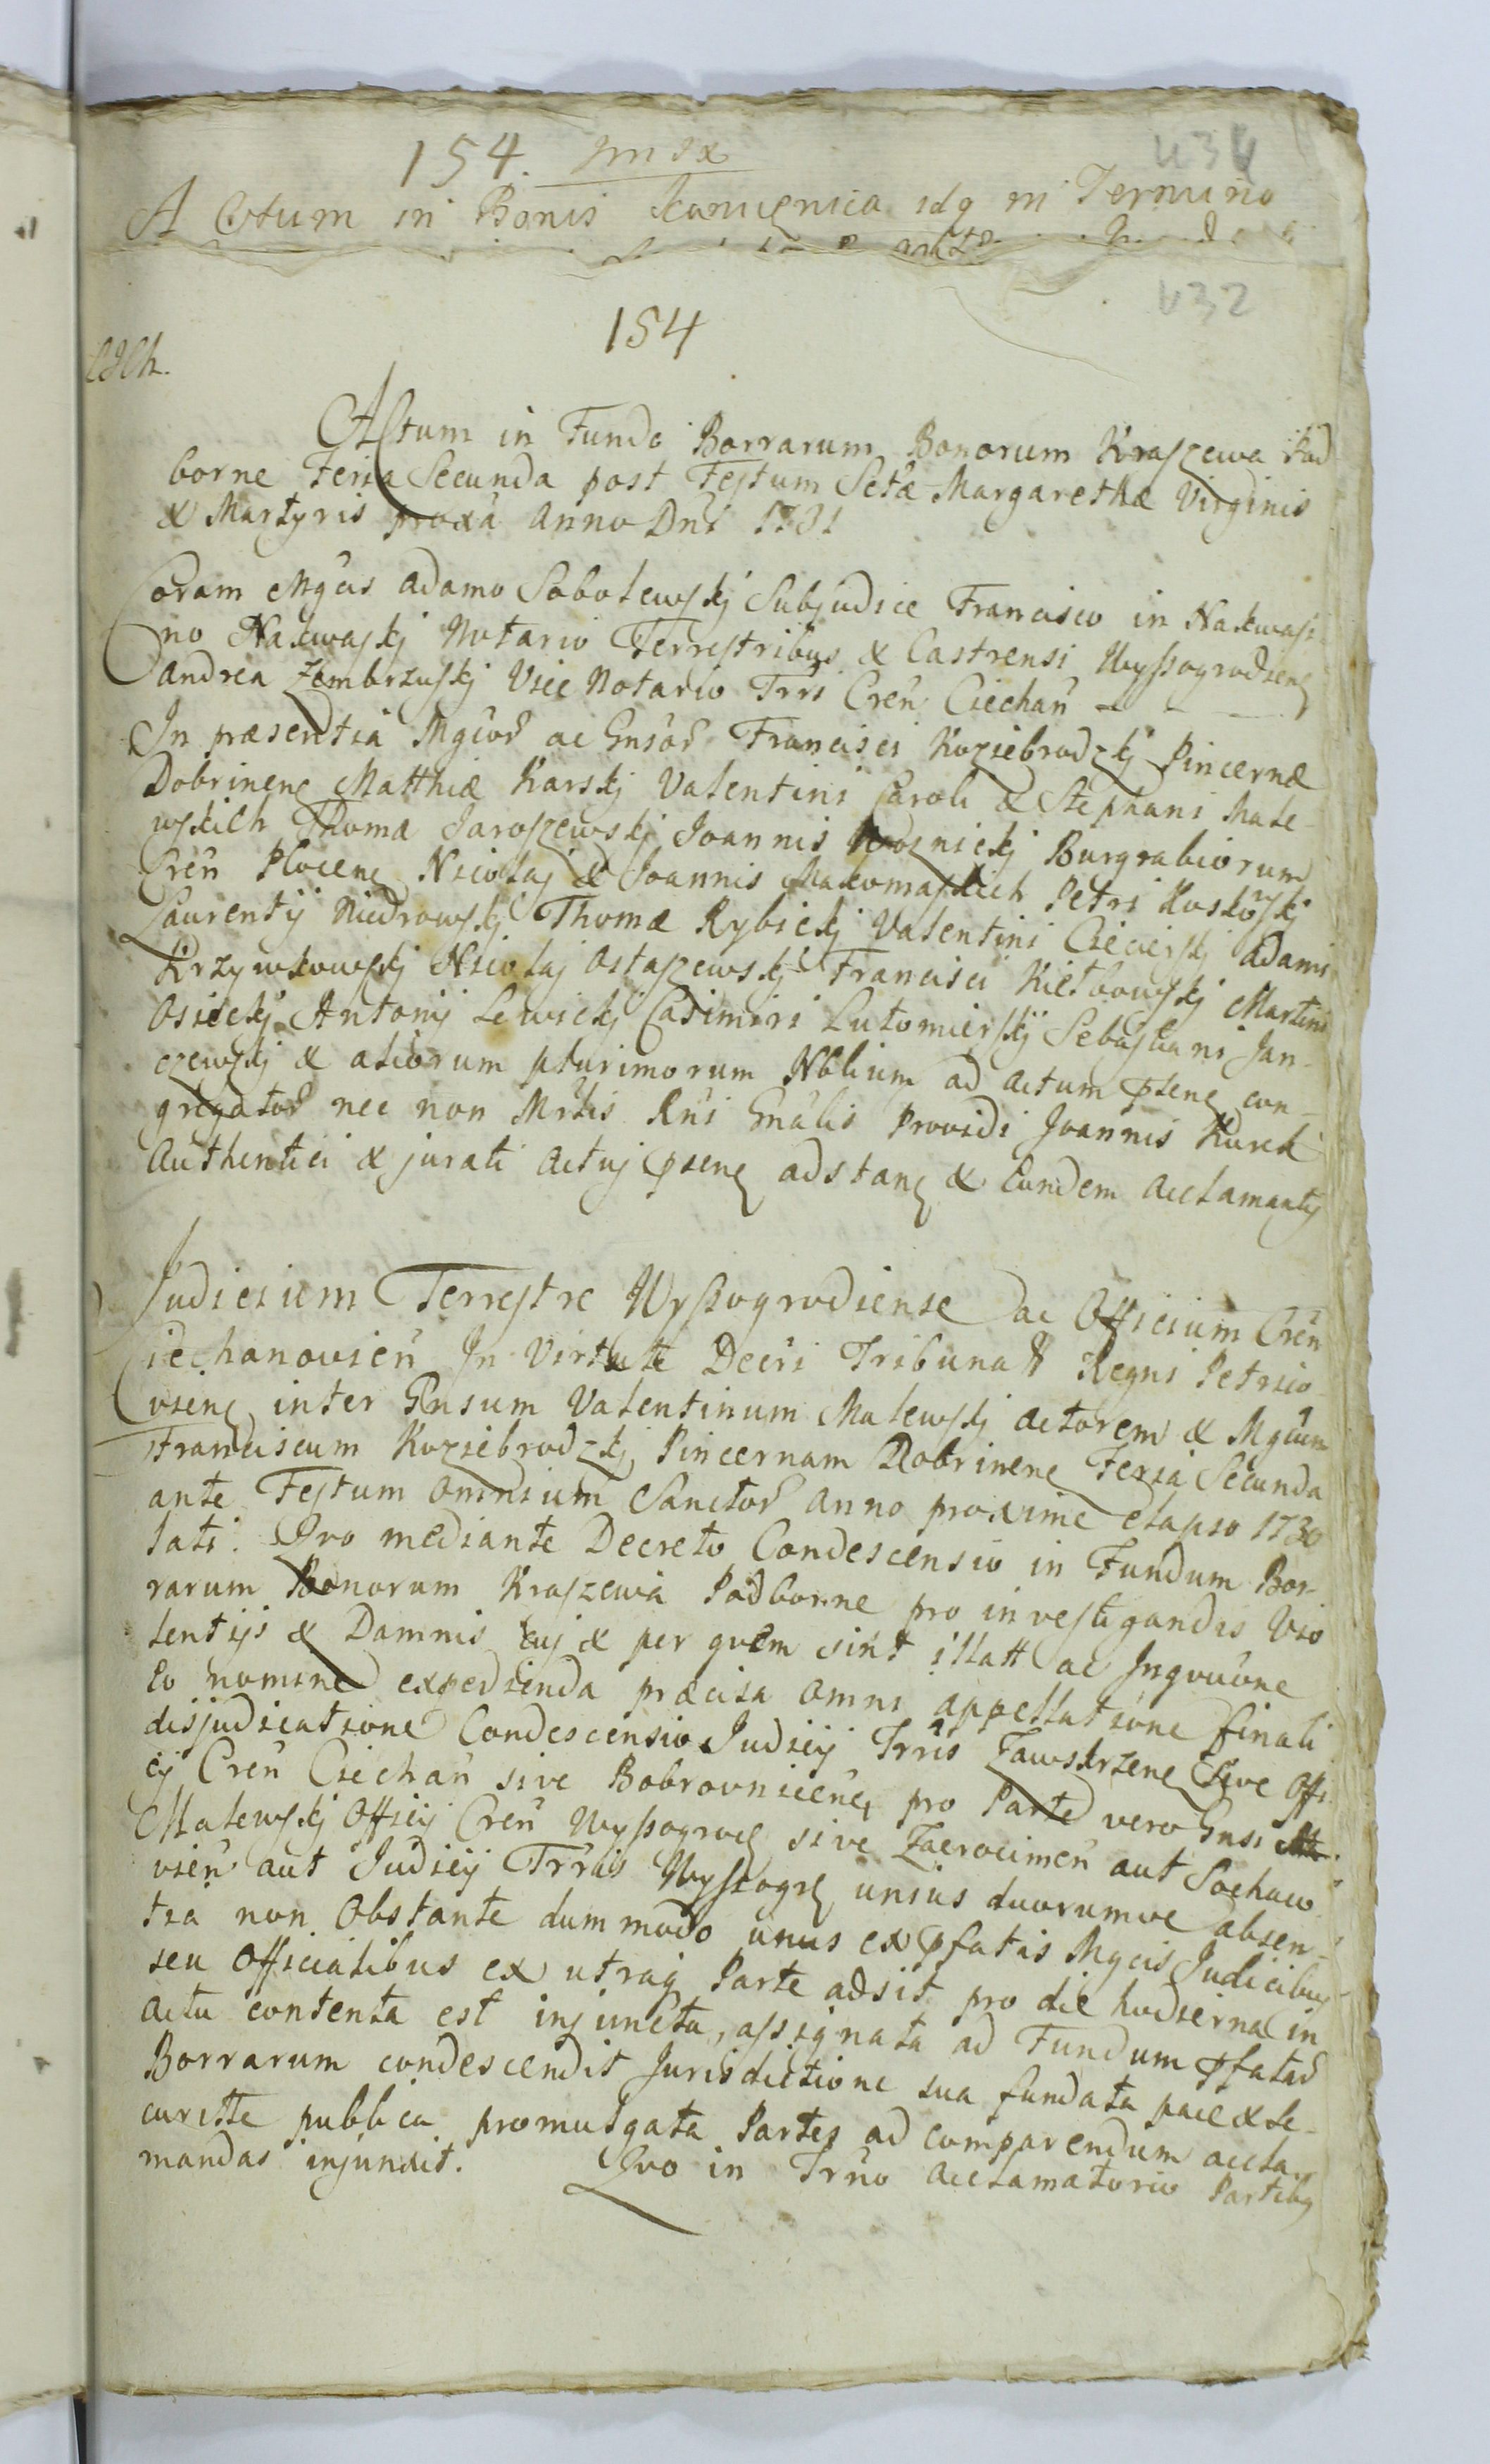 154.
434
Actum in Bonis Kamięnica idq in Termino
432
154
Actum in Fundo Borrarum Bonorum Kraszewa Pod
borne Feria Secunda post Festum Sctæ Margarethæ Virginis
& Martyris proxa Anno Dni 1731
Coram Mgcis Adamo Sobolewskj Subjudice Francisco in Nakwasi-
no Nakwaskj Notario Terrestribus & Castrensi Wyssogrodieng
Andrea Zembrzuskj Vice Notario Trri Cren Ciechan -
In præsentia Mgcor ac Gnsor Francisci Koziebrodzkj Pincernæ
Dobrineng Matthiæ Karskj Valentini Caroli & Stephani Male-
wskich Thoma Jaroszewskj Joannis Woznickj Burgrabiorum
Cren Ploceng Nicolaj & Joannis Makomaskich Petri Koskowskj
Laurentij Niedrowskj Thomæ Rybickj Valentini Ciecierskj Adami
Krzywkowskj Nicolaj Ostaszewskj Francisci Kiełbowskj Martini
Osieckj Antonij Lewickj Casimiri Lutomierskj Sebastiani Jan-
czewskj & aliorum plurimorum Nblium ad actum pseng con-
gregator nec non Mrtis Rni Gnalis Providi Joannis Kurek
Authentici & jurati Actuj pseng adstang & Eundem acclamantis
Judicium Terrestre Wyssogrodiense ac Officium Cren
Ciechanovien In Virtute Decri Tribunatt Regni Petrico-
vieng inter Gnsum Valentinum Malewskj actorem & Mgcum
Franciscum Koziebrodzkj Pincernam Dobrineng Feria Secunda
ante Festum Omnium Sanctor Anno proxime elapso 1730
lati. Quo mediante Decreto Condescensio in Fundum Bor-
rarum Bonorum Kraszewa Podborne pro investigandis Vio
lentijs & Damnis cuj & per quem sint illatt ac Inqvuone
Eo nomine expedienda præcisa omni appellatione finali
disjudicatione Condescensio Judicij Trris Zawskrzeng sive Offi-
cij Cren Ciechan sive Bobrovniceng pro Parte vero Gnsi
Malewskj Officij Cren Wyssogrod sive Zacrocimen aut Sochaco
vien aut Judicij Trruis Wyssogr unius duorumve absen-
tia non Obstante dummodo unus ex pfatis Mgcis Judicibus
seu Officialibus ex utraq Parte adsit pro die hodierna in
actu contenta est injuncta, assignata ad Fundum pfatar
Borrarum condescendit Jurisdictione sua fundata pace & se-
curitte publica promulgata Partes ad comparendum accla-
mandas injunxit. Quo in Trno Acclamatorio Partibus